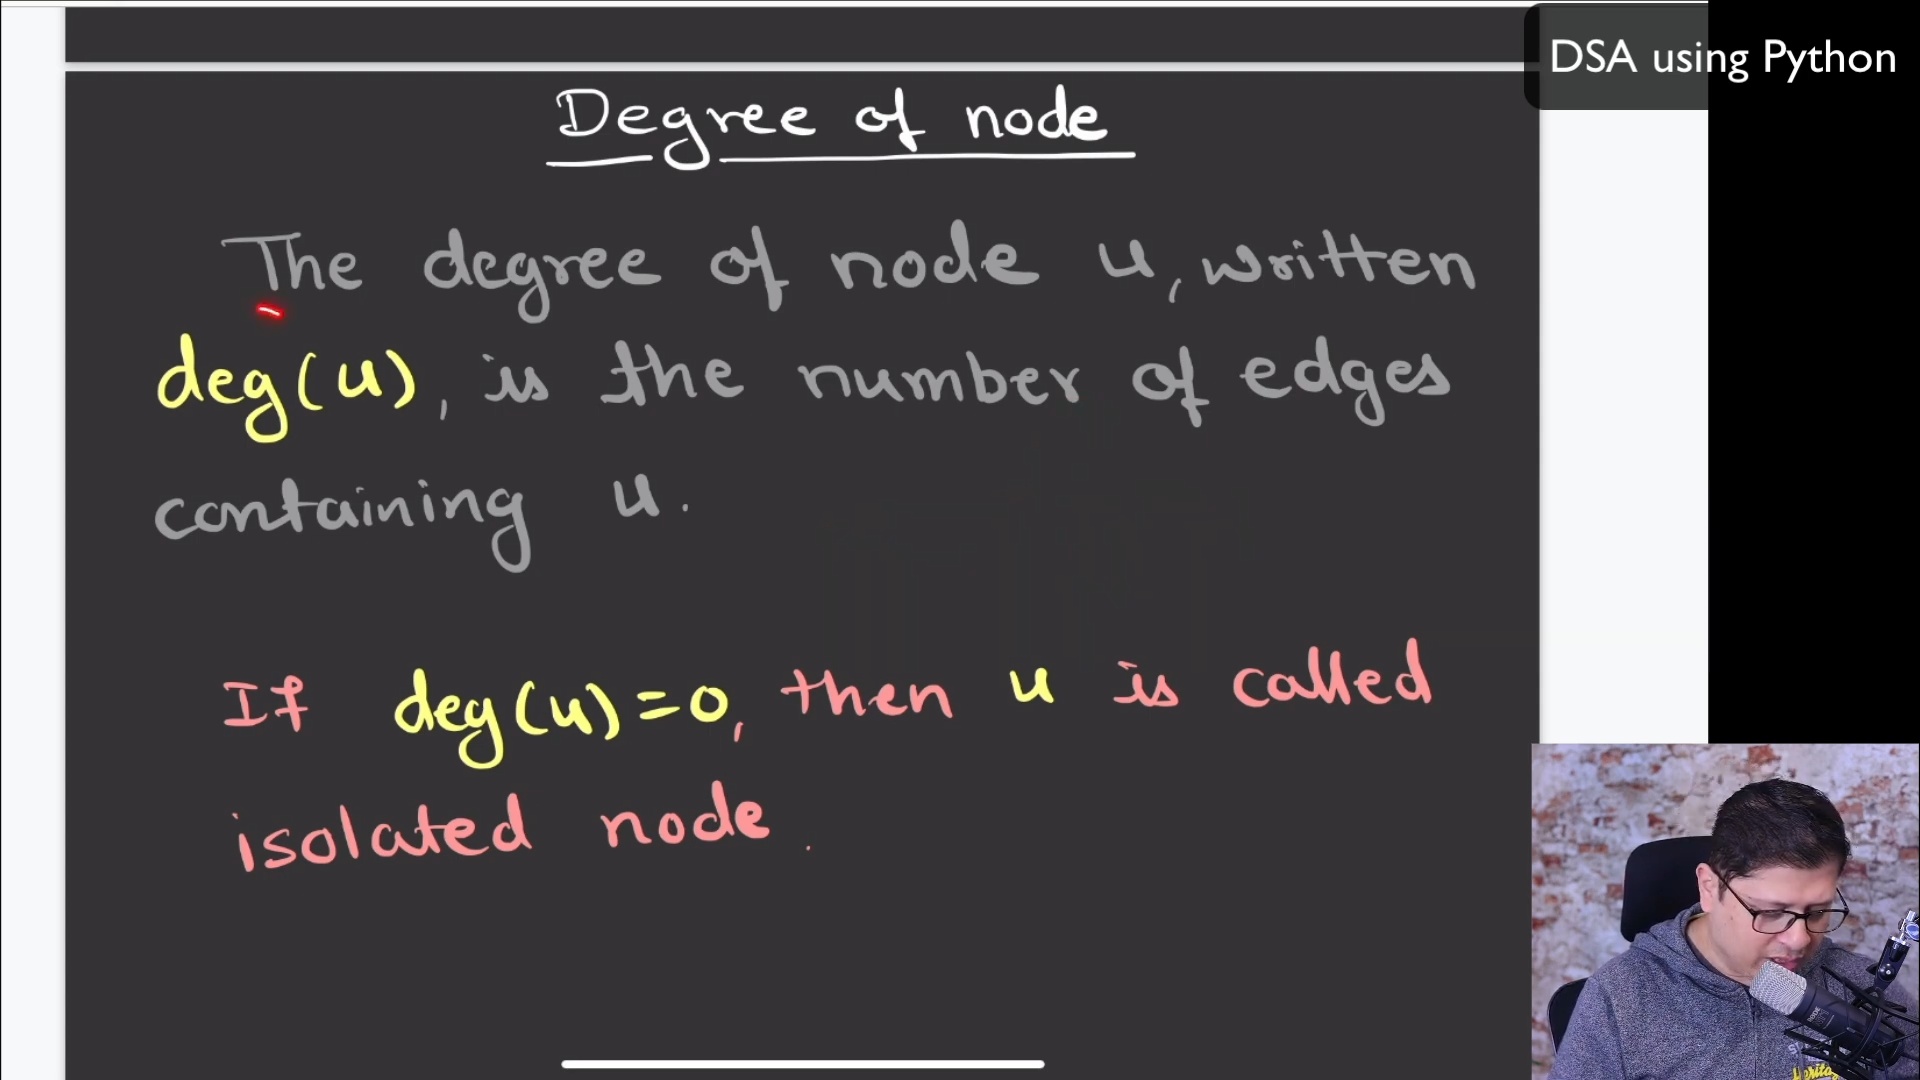 DSA using Python
Degree of node
The degree of node u, written
deg(u), is the number of edges
containing u.
If deg(u)=0, then u is called
isolated node.